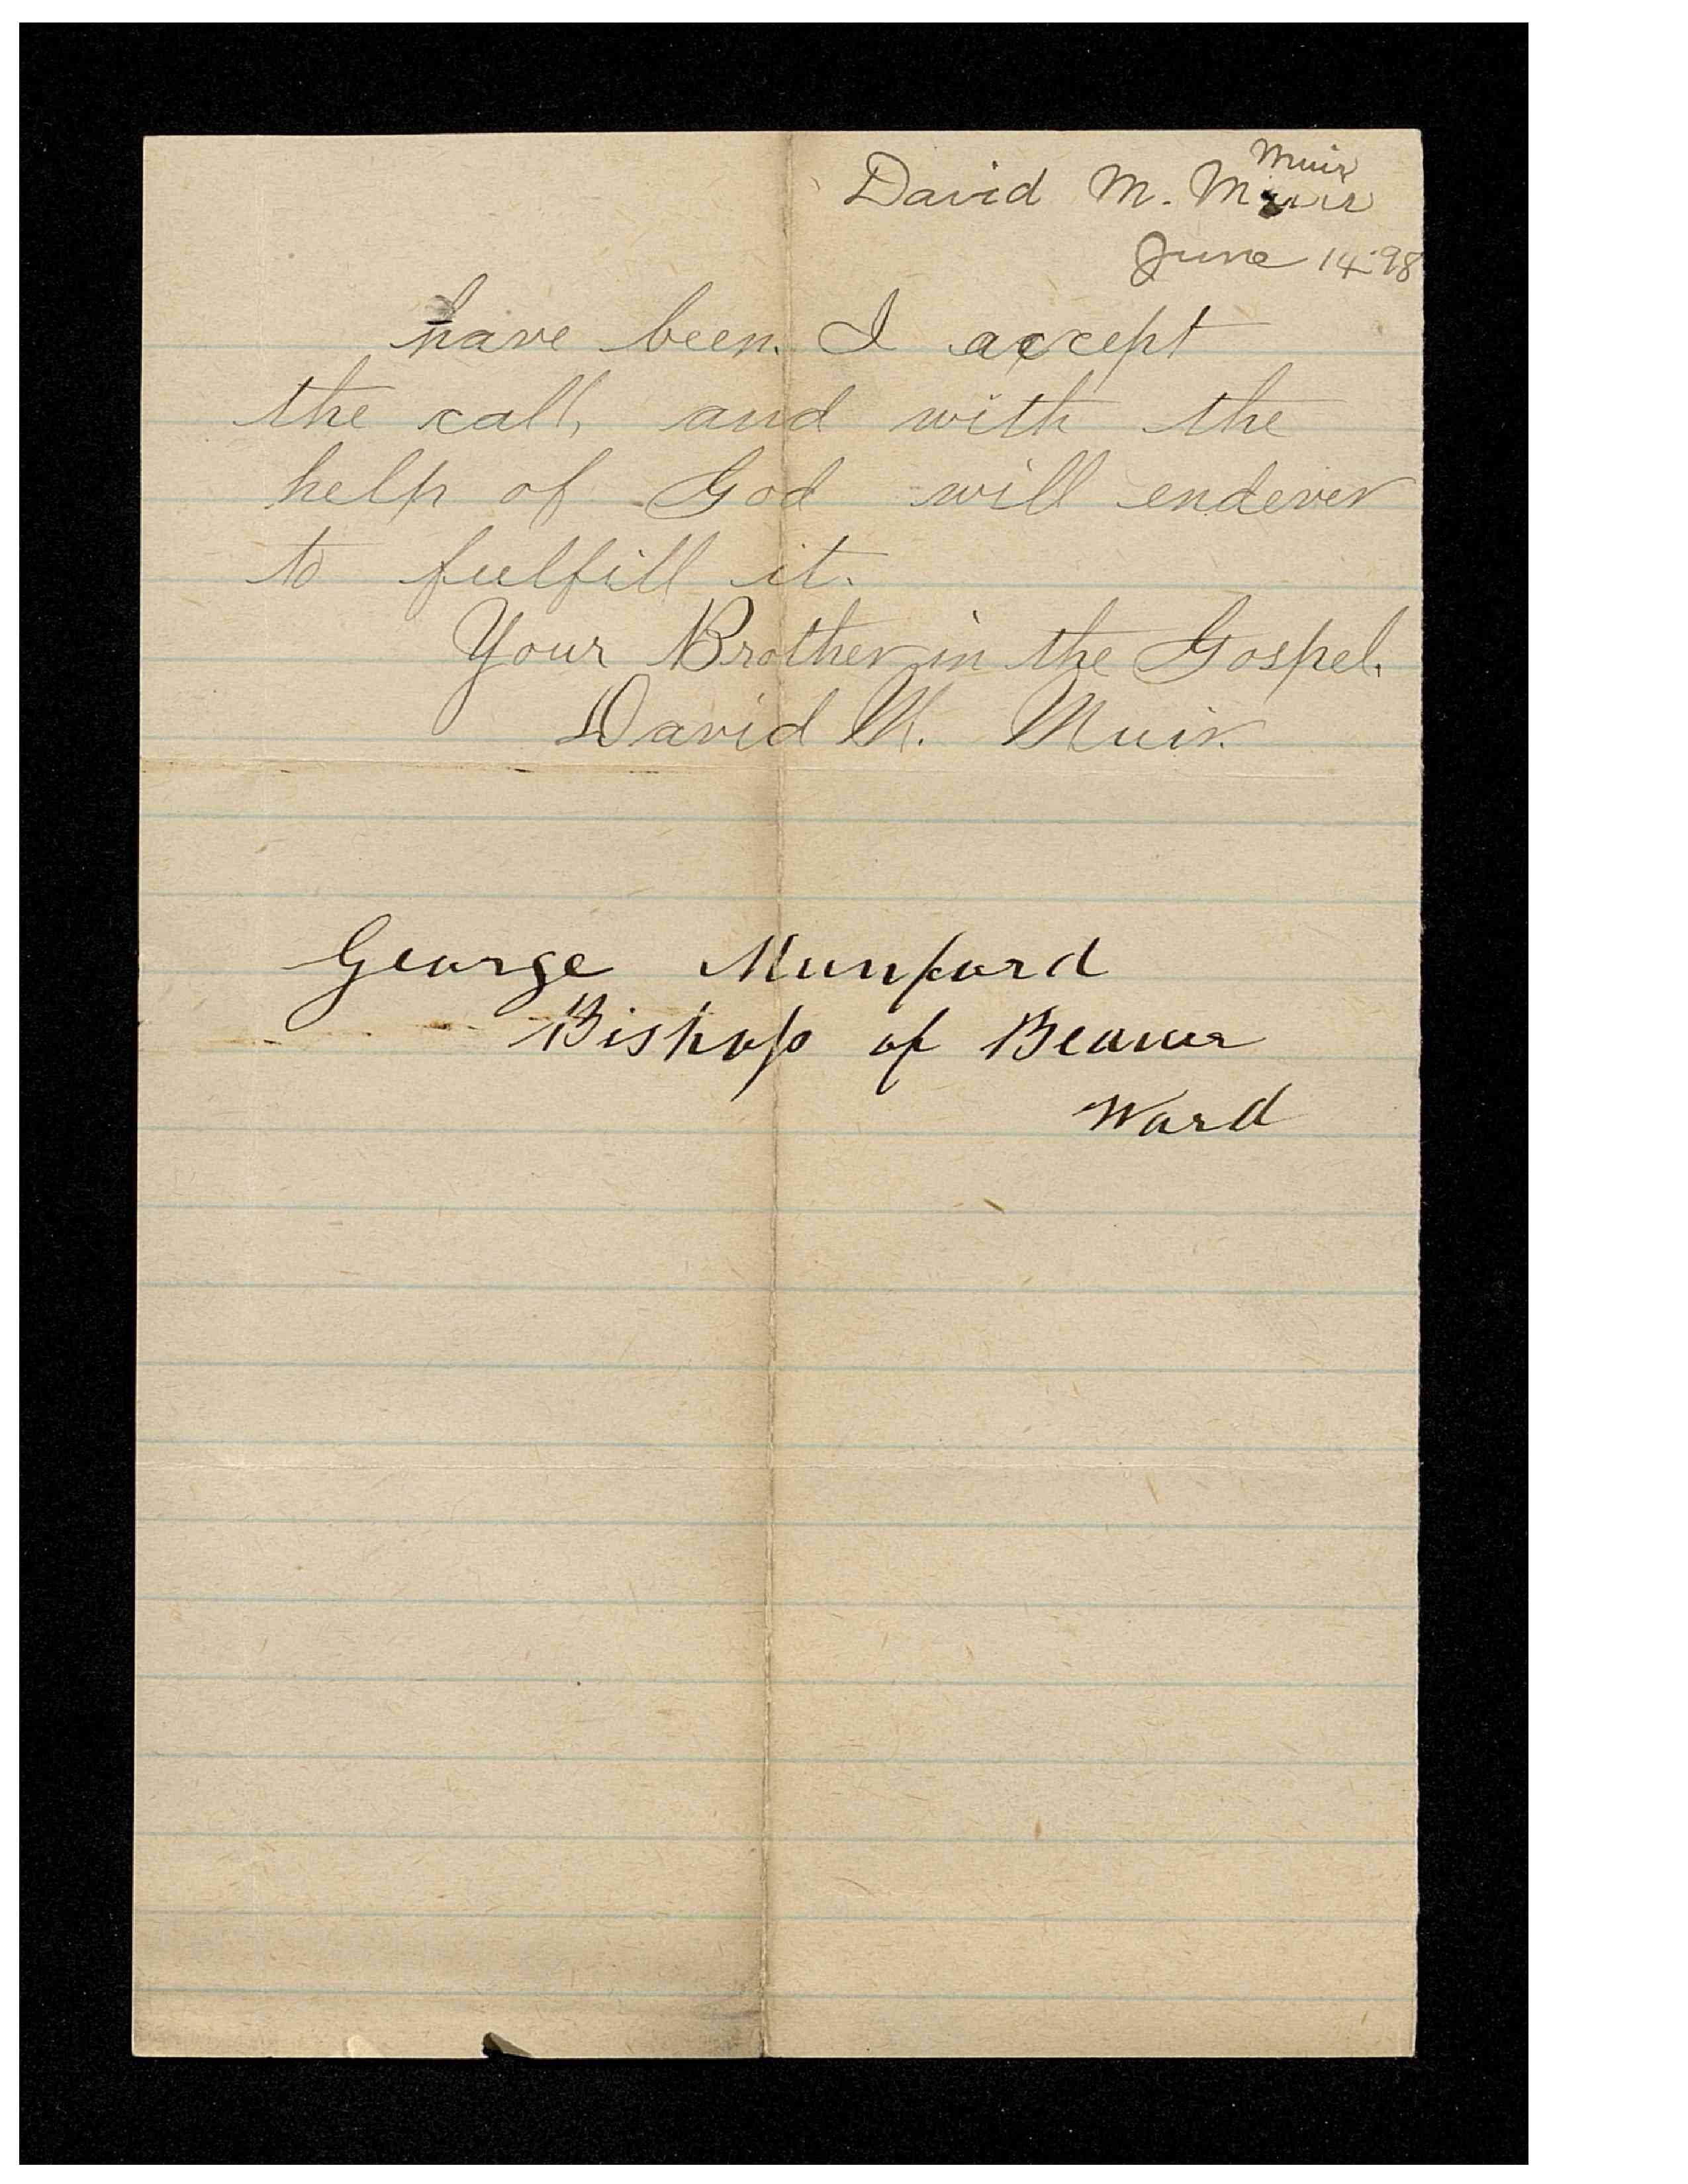 Muir
David M. Muir
June 14-98
have been. I accept
the call, and with the
help of God will endever
to fulfill it.
Your Brother in the Gospel.
David M. Muir.
George Munford
Bishop of Beaver
Ward